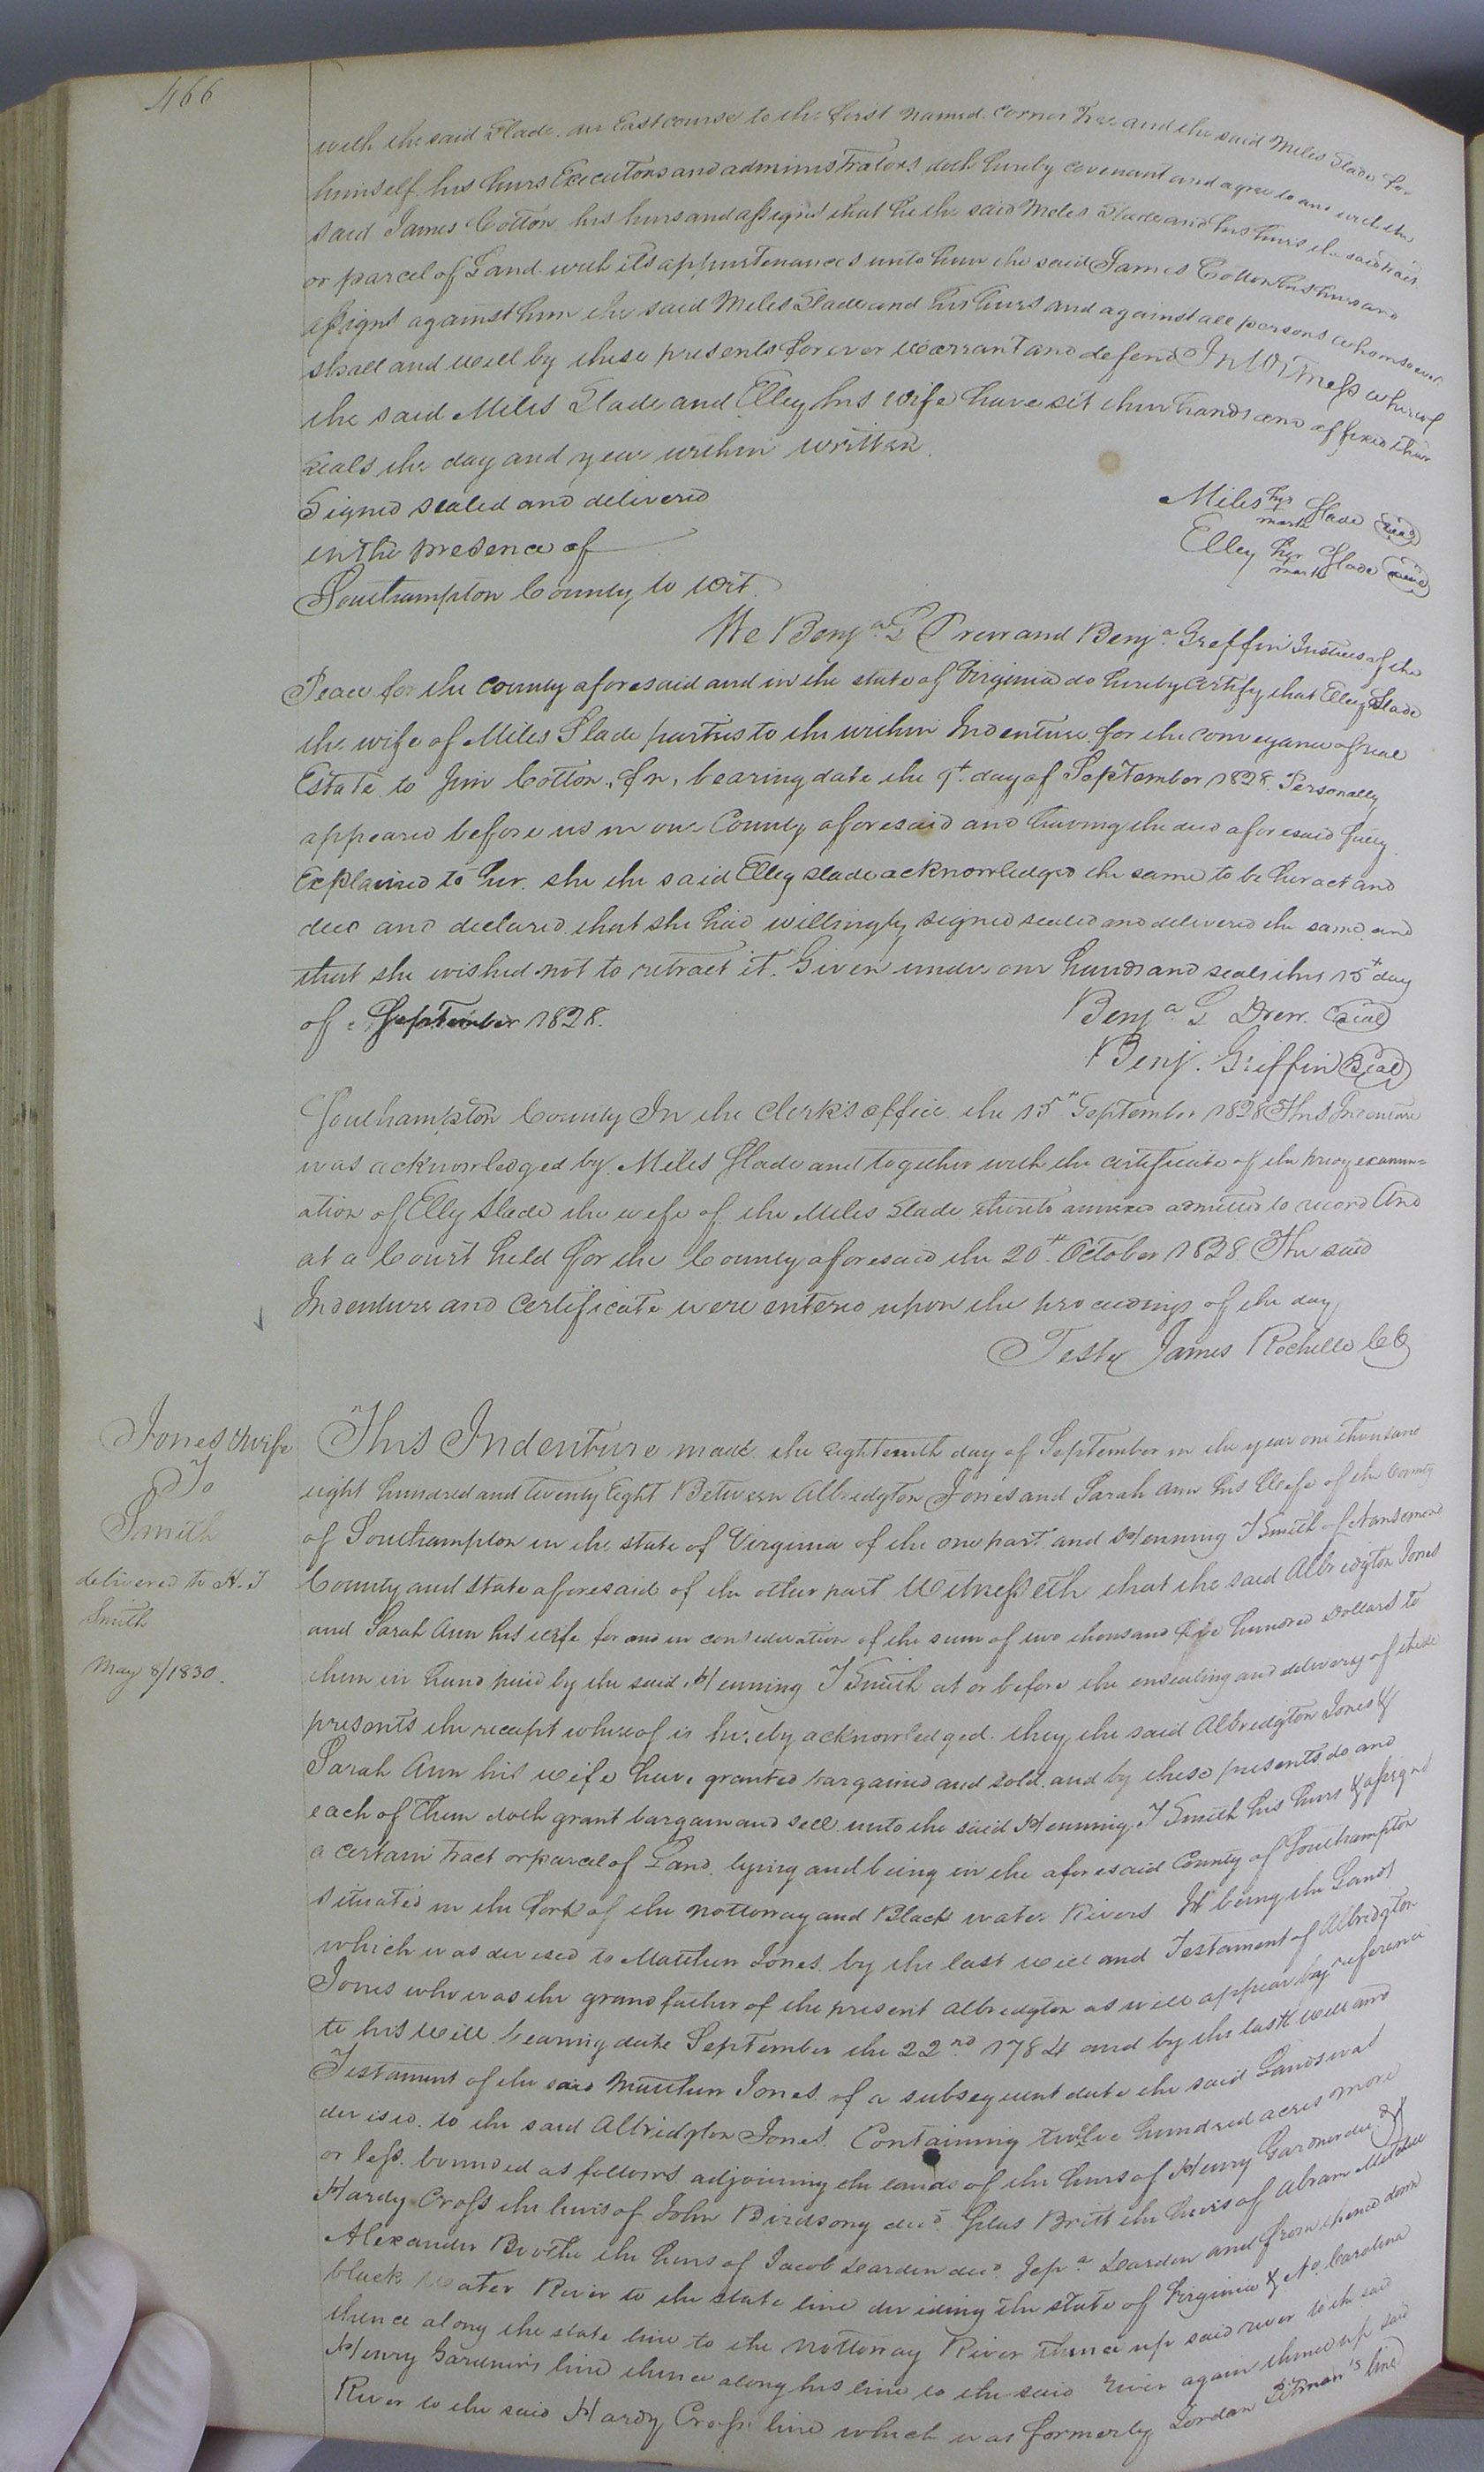 466
with the said Slade. an East course to the first named. Corner Tree and the said Miles Slade for
himself his heirs Executors and administrators doth hereby covenant and agree to and with the
said James Cotton his heirs and assigns that he the said Miles Slade and his heirs the said tract
or parcel of Land with its appurtenances unto him the said James Cotton his heirs and
assigns against him the said Miles Slade and his heirs and against all persons whomsoever
shall and will by these presents forever warrant and defend In Witness whereof
the said Miles Slade and Elley his wife have set their hands and affixed their
seals the day and year within written.
Signed sealed and delivered
in the presence of
Miles his mark Slade seal
Elley her mark Slade seal
Southampton County to wit.
We Benja. G Drew and Benja. Griffin Justices of the
Peace for the county aforesaid and in the state of Virginia do hereby certify that Elley Slade
the wife of Miles Slade parties to the within Indenture for the conveyance of real
Estate to Jim Cotton, Jn, bearing date the 9t. day of September 1828. Personally
appeared before us in our County aforesaid and having the deed aforesaid fully
Explained to her. she the said Elley Slade acknowledged the same to be her act and
deed and declared that she had willingly signed sealed and delivered the same and
that she wished not to retract it. Given under our hands and seals this 15t day
of September 1828.
Benja. G Drew. Seal
Benj. Griffin Seal
Southampton County In the Clerk's office the 15th September 1828 This Indenture
was acknowledged by Miles Slade and together with the certificate of the privy examin=
ation of Elly Slade the wife of the Miles Slade thereto annexed admitted to record And
at a Court held for the County aforesaid the 20t. October 1828 The said
Indenture and Certificate were entered upon the proceedings of the day
Teste James Rochelle CC
Jones & wife
To
Smith
delivered to H. T
Smith
May 8/1830.
This Indenture made the eighteenth day of September in the year one thousand
eight hundred and twenty Eight Between Albridgton Jones and Sarah Ann his Wife of the County
of Southampton in the state of Virginia of the one part and Henning T Smith of Nansemond
County and state aforesaid of the other part Witnesseth that the said Albridgton Jones
and Sarah Ann his wife for and in consideration of the sum of two thousand five hundred Dollars to
them in hand paid by the said Henning T Smith at or before the ensealing and delivery of these
presents the receipt whereof is hereby acknowledged. they the said Albridgton Jones &
Sarah Ann his wife have granted bargained and sold. and by these presents do and
each of them doth grant bargain and sell unto the said Henning T Smith his heirs & assigns
a certain tract or parcel of Land. lying and being in the aforesaid County of Southampton
situated in the fork of the nottoway and Black water Rivers It being the Lands
which was devised to Matthew Jones. by the last will and Testament of Albridgton
Jones who was the grandfather of the present Albridgton as will appear by reference
to his Will bearing date September the 22nd. 1784 and by the last will and
Testament of the said Matthew Jones. of a subsequent date the said Lands was
devised. to the said Albridgton Jones. Containing twelve hundred acres more
or less. bounded as follows adjoining the lands of the heirs of Henry Gardner decd. &
Hardy Cross the heirs of John Birdsong decd. Giles Britt the heirs of Abram Mitchell
Alexander Boothe the heirs of Jacob Darden decd. Jepa Darden and from thence down
black water River to the state line dividing the state of Virginia & No. Carolina
thence along the state line to the Nottoway River thence up said river to the said
Henry Gardner's line thence along his line to the said river again thence up said
River to the said Hardy Cross line which was formerly Jordan Pitman's line